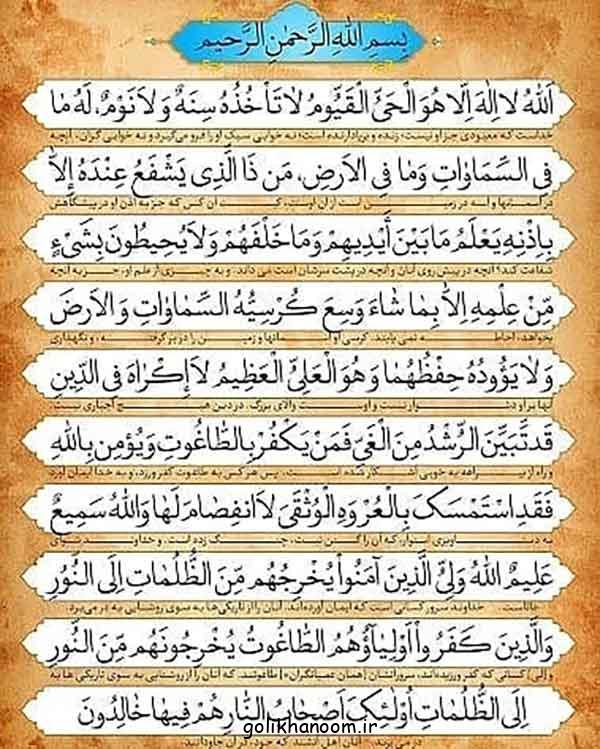 بِسْمِ اللهِ الرَّحْمٰنِ الرَّحِیمِ
اَللهُ لَا اِلٰهَ اِلَّا هُوَ الْحَیُّ الْقَیُّومُ لَا تَأْخُذُهُ سِنَةٌ وَلَا نَوْمٌ، لَهُ مَا
خداست که معبودی جز او نیست؛ زنده و برپادارنده است؛ نه خوابی سبک او را فرو می‌گیرد و نه خوابی گران. آنچه
فِی السَّمَاوَاتِ وَمَا فِی الْاَرْضِ، مَن ذَا الَّذِی یَشْفَعُ عِنْدَهُ إِلَّا
در آسمانها و آنچه در زمین است از آن اوست. کیست آن کس که جز به اذن او در پیشگاهش
بِإِذْنِهِ یَعْلَمُ مَا بَیْنَ أَیْدِیهِمْ وَمَا خَلْفَهُمْ وَلَا یُحِیطُونَ بِشَیْءٍ
شفاعت کند؟ آنچه در پیش روی آنان و آنچه در پشت سرشان است می داند. و به چیزی از علم او، جز به آنچه
مِّنْ عِلْمِهِ إِلَّا بِمَا شَاءَ وَسِعَ كُرْسِیُّهُ السَّمَاوَاتِ وَالْاَرْضَ
بخواهد، احاطه نمی یابند. کرسی او آسمانها و زمین را در بر گرفته، و نگهداری
وَلَا یَؤُودُهُ حِفْظُهُمَا وَهُوَ الْعَلِیُّ الْعَظِیمُ لَا إِكْرَاهَ فِی الدِّینِ
آنها بر او دشوار نیست و اوست والای بزرگ. در دین هیچ اجباری نیست
قَد تَّبَیَّنَ الرُّشْدُ مِنَ الْغَیِّ فَمَنْ یَكْفُرْ بِالطَّاغُوتِ وَیُؤْمِن بِاللهِ
و راه از بیراهه به خوبی آشکار شده است. پس هر کس به طاغوت کفر ورزد، و به خدا ایمان آورد
فَقَدِ اسْتَمْسَكَ بِالْعُرْوَةِ الْوُثْقَىٰ لَا انفِصَامَ لَهَا وَاللهُ سَمِیعٌ
به دستاویزی استوار، که آن را گسستن نیست، چنگ زده است. و خداوند شنوای
عَلِیمٌ اللهُ وَلِیُّ الَّذِینَ آمَنُواْ یُخْرِجُهُم مِّنَ الظُّلُمَاتِ إِلَى النُّوُرِ
داناست. خداوند سرور کسانی است که ایمان آورده‌اند. آنان را از تاریکی‌ها به سوی روشنایی به در می‌برد.
وَالَّذِینَ كَفَرُواْ أَوْلِیَاؤُهُمُ الطَّاغُوتُ یُخْرِجُونَهُم مِّنَ النُّورِ
و [لی] کسانی که کفر ورزیده‌اند، سرورانشان [همان عصیانگران=] طاغوتند، که آنان را از روشنایی به سوی تاریکی ها به
إِلَى الظُّلُمَاتِ أُوْلَئِكَ أَصْحَابُ النَّارِ هُمْ فِیهَا خَالِدُونَ
در می‌برند. آنان اهل آتشند که خود، در آن جاودانند.
golikhanoom.ir